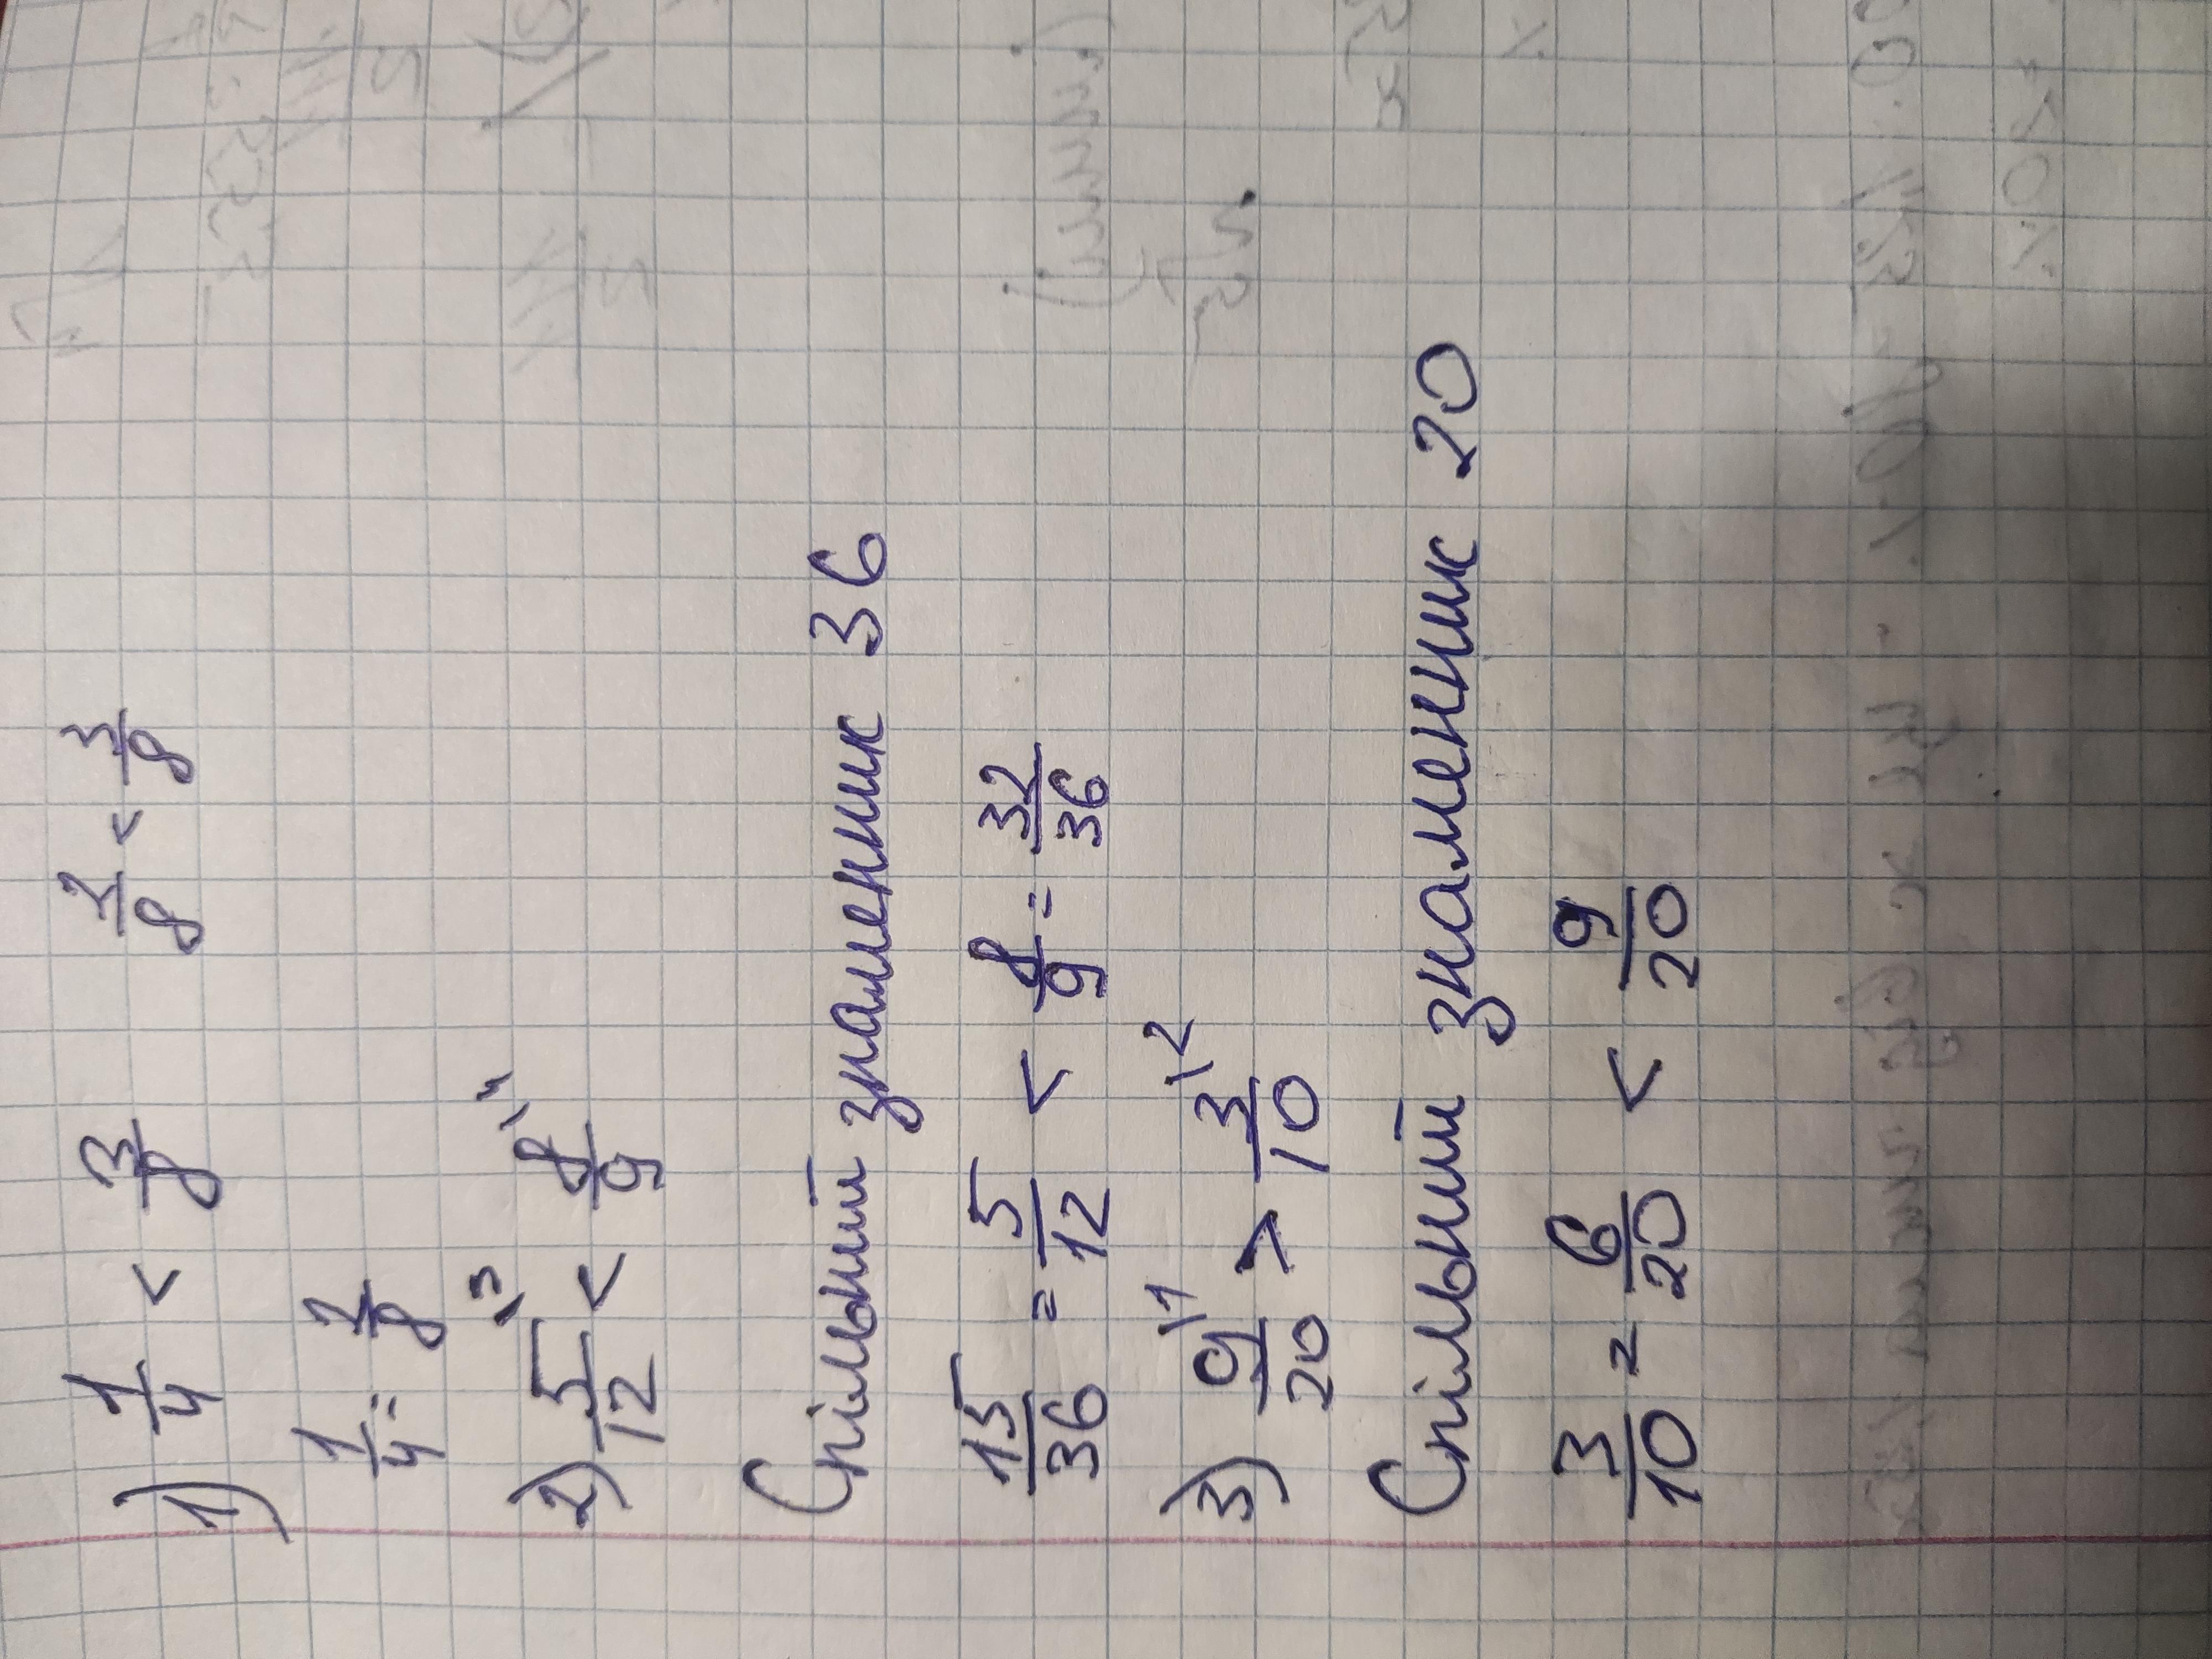 1) 1/4 < 3/8 2/8 < 3/8
1/4 = 2/8
2) 5/12 \3 < 8/9 \4
Спільний знаменник 36
15/36 = 5/12 < 8/9 = 32/36
3) 9/20 \1 > 3/10 \2
Спільний знаменник 20
3/10 = 6/20 < 9/20